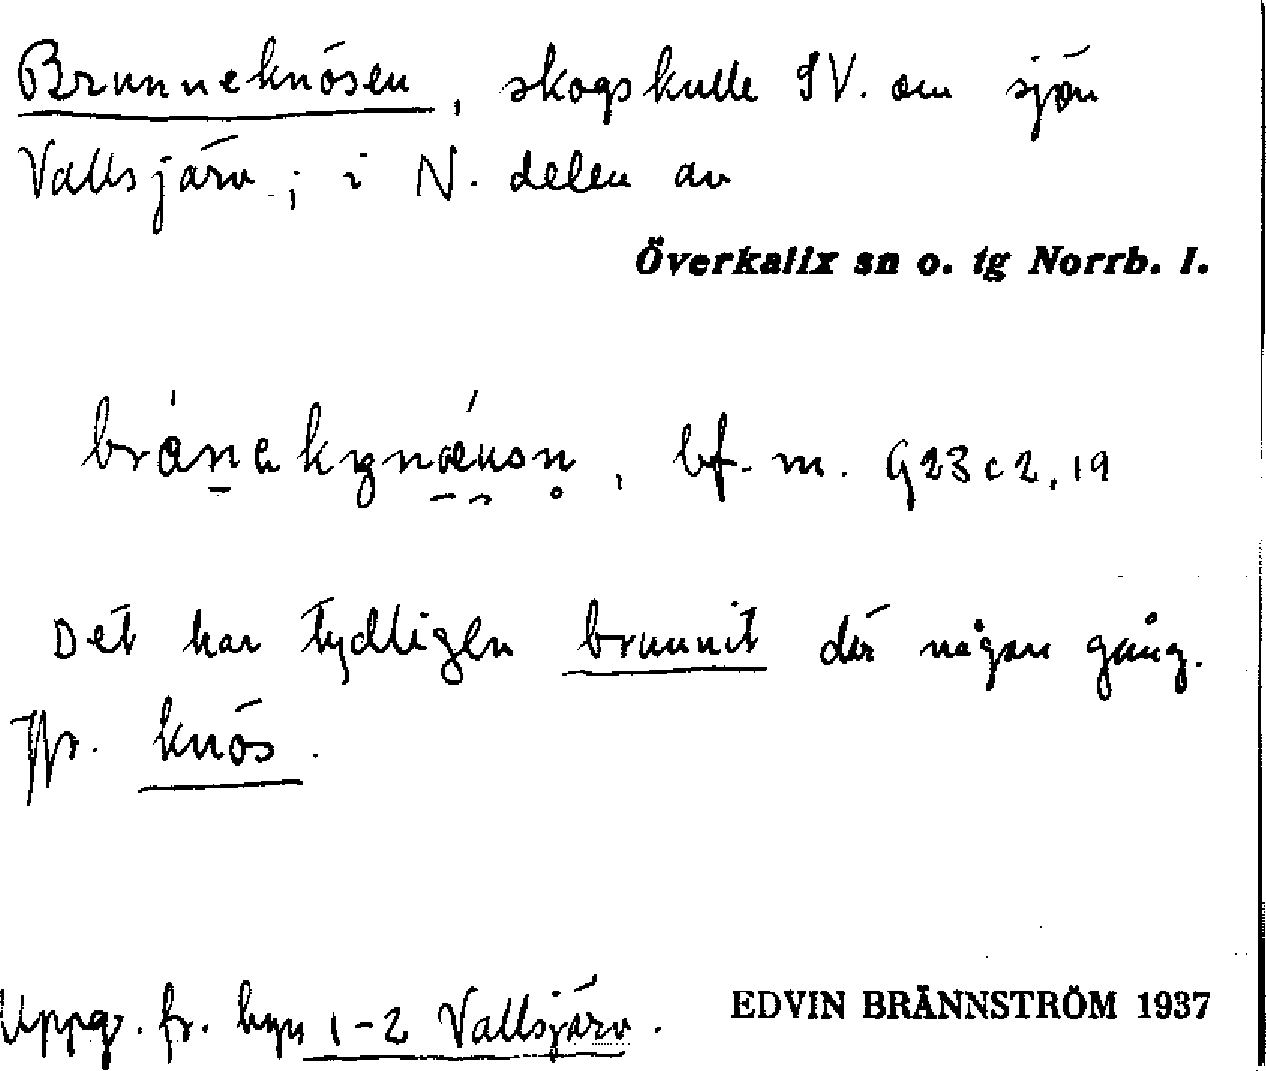 Brunneknösen, skogskulle SV. om sjön
Vallsjärv; i N. delen av
Överkalix sn o. tg Norrb. l.
bf. m. G23c2,19
Det har tydligen brunnit där någon gång.
Jfr. knös.
Uppg. fr. byn 1-2 Vallsjärv.
EDVIN BRÄNNSTRÖM 1937